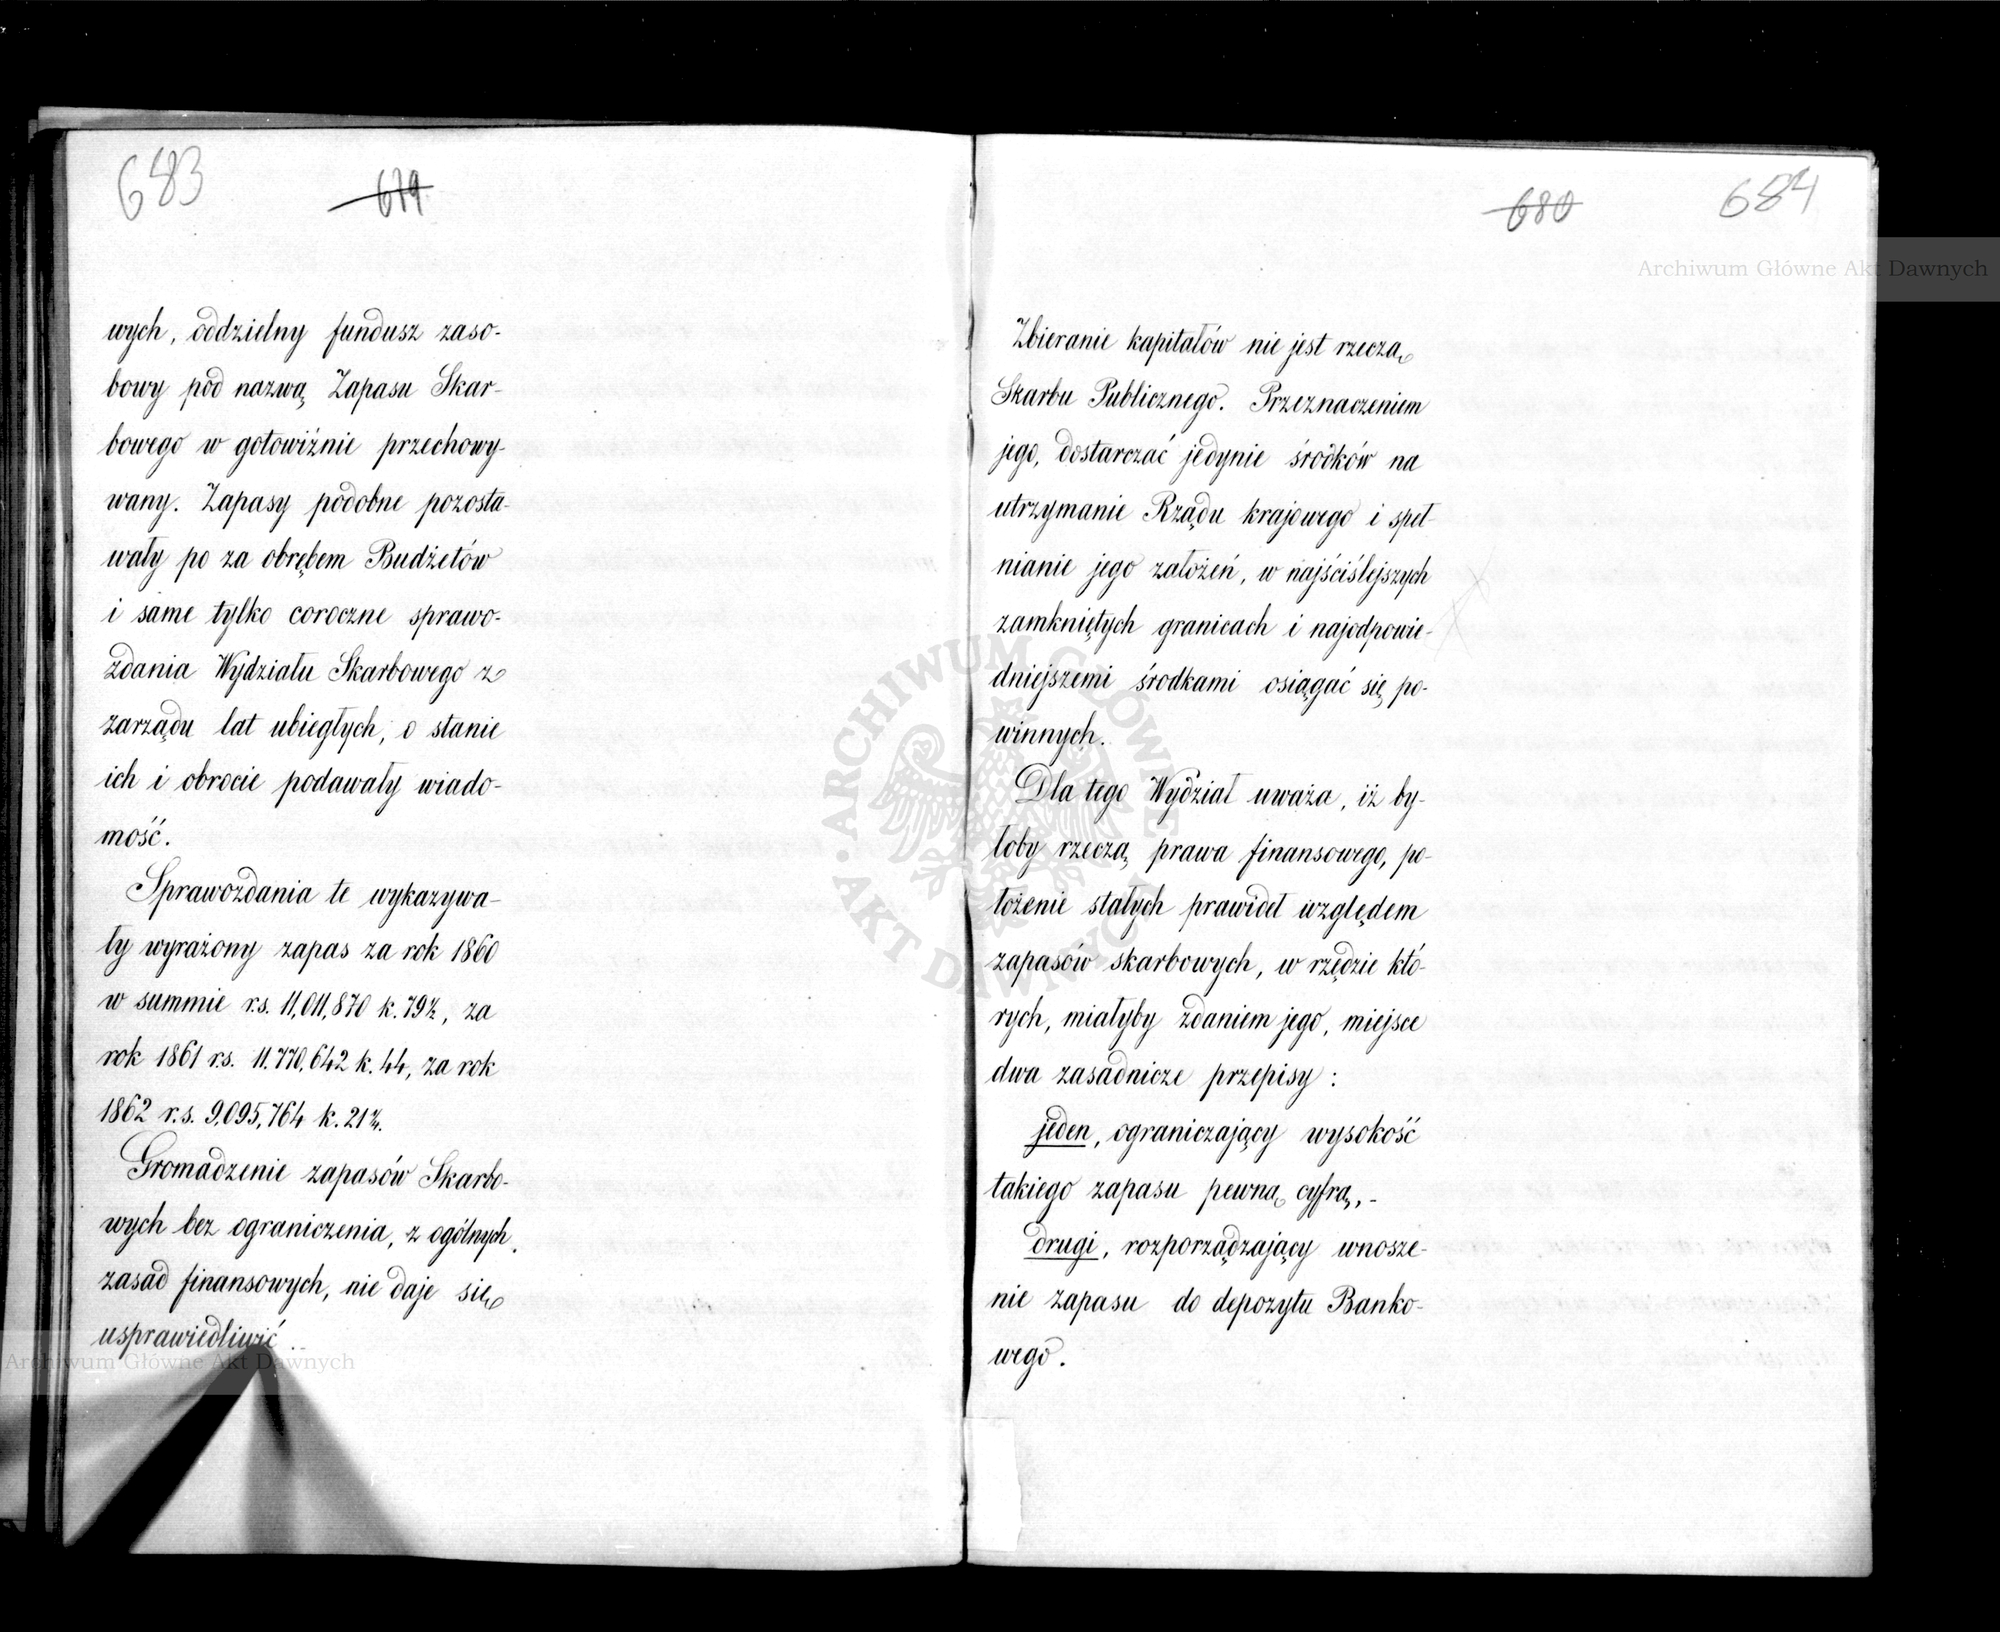 683
679
wych, oddzielny fundusz zaso-
bowy pod nazwą Zapasu Skar-
bowego w gotowiźnie przechowy-
wany. Zapasy podobne pozosta-
wały po za obrębem Budżetów
i same tylko coroczne sprawo-
zdania Wydziału Skarbowego z
zarządu lat ubiegłych, o stanie
ich i obrocie podawały wiado-
mość.
Sprawozdania te wykazywa-
ły wyrażony zapas za rok 1860
w summie r.s. 11,011,870 k. 79½, za
rok 1861 r.s. 11.770,642 k. 44, za rok
1862 r.s. 9,095,764 k. 21½.
Gromadzenie zapasów Skarbo-
wych bez ograniczenia, z ogólnych
zasad finansowych, nie daje się
usprawiedliwić
Archiwum Główne Akt Dawnych
680
684
Archiwum Główne Akt Dawnych
Zbieranie kapitałów nie jest rzeczą
Skarbu Publicznego. Przeznaczeniem
jego, dostarczać jedynie środków na
utrzymanie Rządu krajowego i speł-
nianie jego założeń, w najściślejszych
zamkniętych granicach i najodpowie-
dniejszemi środkami osiągać się po-
winnych.
Dla tego Wydział uważa, iż by-
łoby rzeczą prawa finansowego, po-
łożenie stałych prawideł względem
zapasów skarbowych, w rzędzie któ-
rych, miałyby zdaniem jego, miejsce
dwa zasadnicze przepisy:
jeden, ograniczający wysokość
takiego zapasu pewną cyfrą,-
drugi, rozporządzający wnosze-
nie zapasu do depozytu Banko-
wego.
ARCHIWUM GŁÓWNE AKT DAWNYCH